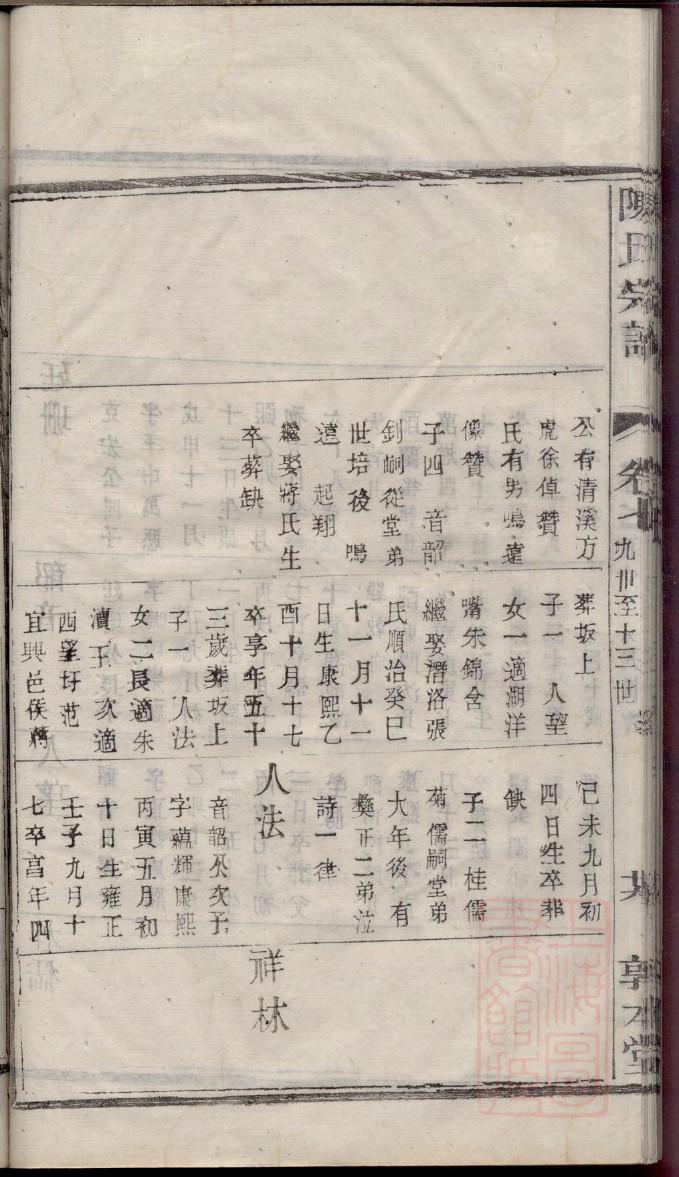 陳氏宗譜
卷七
九世至十三世
敦本堂
公有清溪方
虎徐倬贊
氏有男鳴遠
像贊
子四　音韶
釗嗣從堂弟
世培後　鳴
遠　起翔
繼娶蔣氏生
卒葬缺
葬坂上
子一　人望
女一適湖洋
嘴朱錦舍
繼娶潛洛張
氏順治癸巳
十一月十一
日生康熙乙
酉十月十七
卒享年五十
三歲葬坂上
子一　人法
女二長適朱
瀆王　次適
西望圩范
宜興邑侯蔣
己未九月初
四日生卒葬
缺
子二　桂儒
菊儒嗣堂弟
大年後　有
彝正二弟泣
詩一律
人法
音韶公次子
字蘊輝康熙
丙寅五月初
十日生雍正
壬子九月十
七卒享年四
祥林